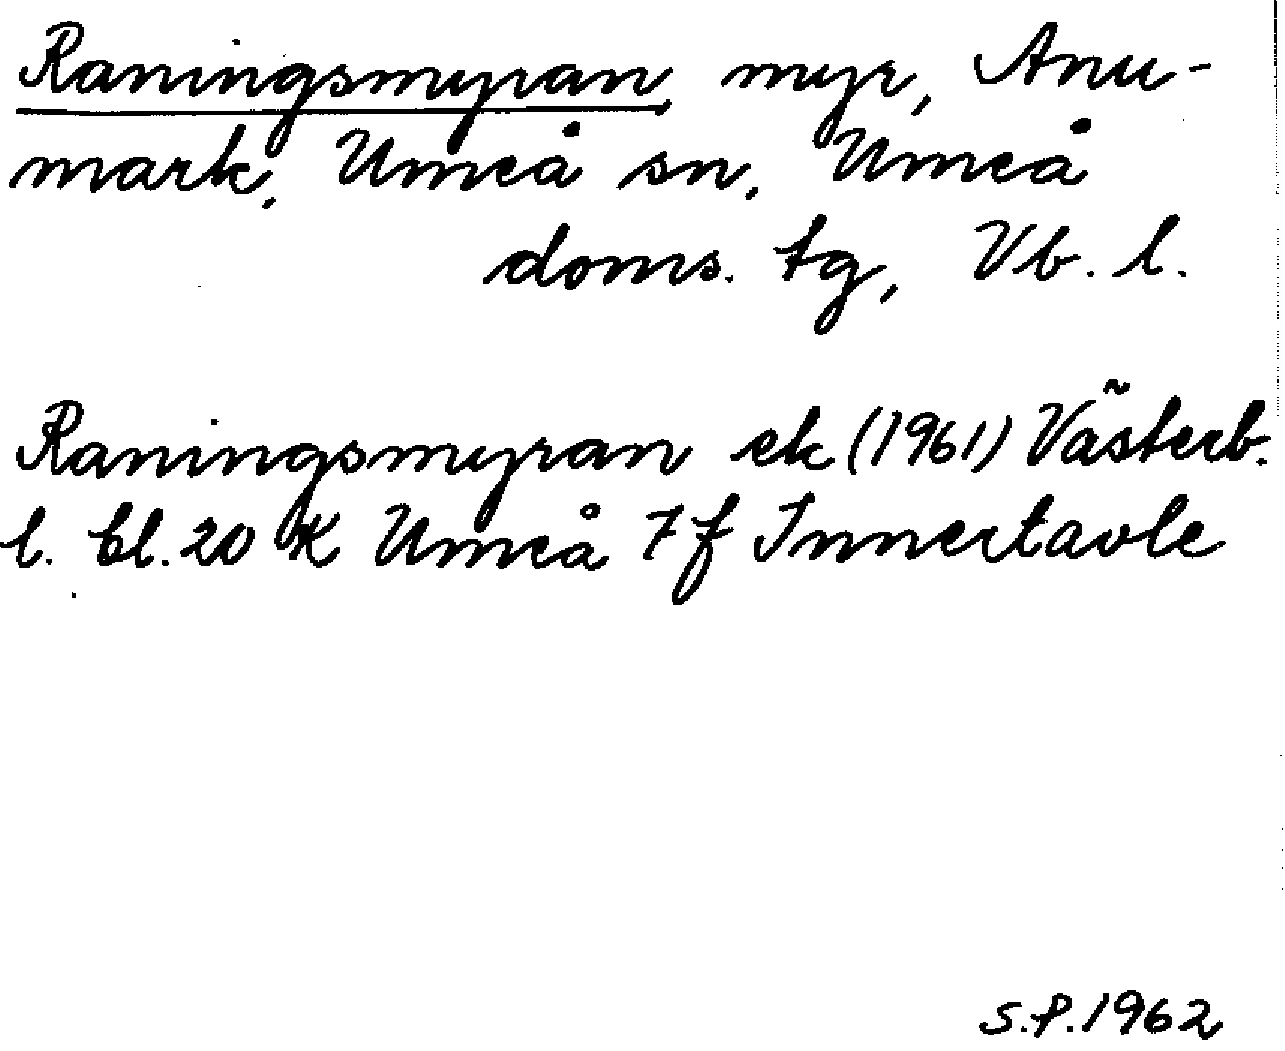 Raningsmyran, myr, Anu-
mark, Umeå sn, Umeå
doms. tg, Vb. l.
Raningsmyran ek (1961) Västerb.
l. bl. 20 K Umeå 7 f Innertavle
S.P. 1962